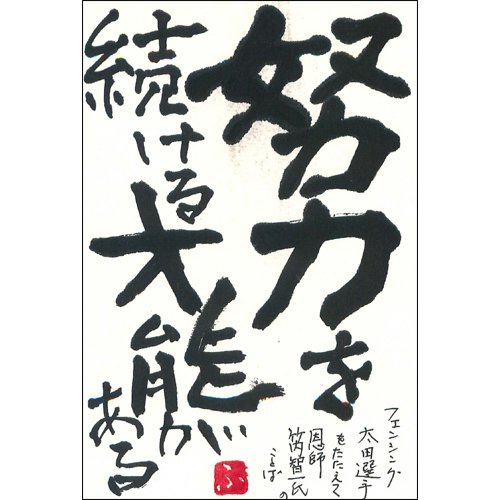 努力を
続ける才能がある
フェンシング
太田選手
をたたえて
恩師
筑智一氏の
ことば
ふ